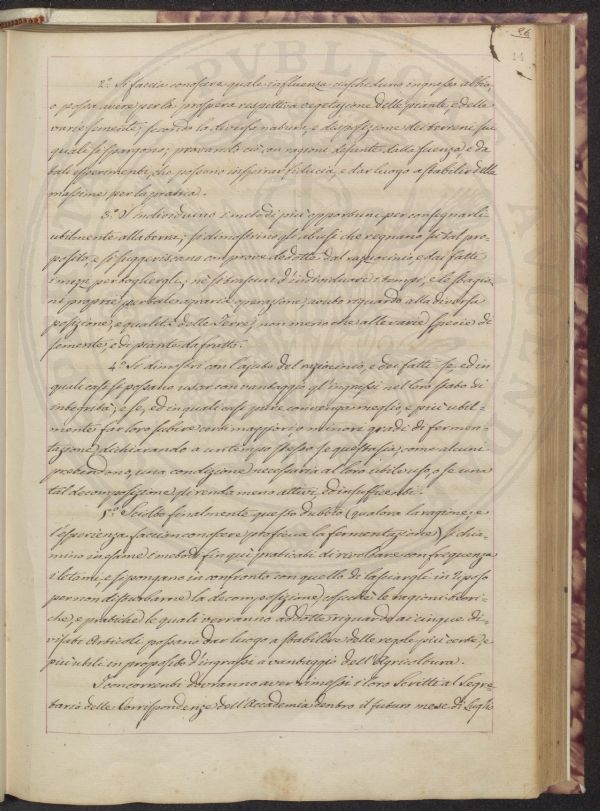 26
14
2.° Si faccia conoscere quale influenza ciascheduno ingrasso abbia,
o possa avere per la prospera respettiva vegetazione delle piante, e delle
varie semente, secondo la diversa natura, e disposizione dei terreni su i
quali si spargono; provando ciò con ragioni desunte dalla scienza, e da
tali esperimenti, che possono inspirar fiducia, e dar luogo a stabilir delle
massime per la pratica.
3.° S'individuino i metodi più opportuni per consegnarli
utilmente alla terra; si dimostrino gli abusi che regnano su tal pro-
posito, e si suggeriscano con prove dedotte dal raziocinio, e dai fatti
i modi per togliergli; nè si trascuri d'individuare i tempi, e le stagio-
ni proprie per tale agraria operazione, avuto riguardo alla diversa
posizione, e qualità delle Terre, non meno che alle varie specie di
semente, e di piante da frutto.
4.° Si dimostri con l'ajuto del raziocinio, e dei fatti se, ed in
quali casi si possano usar con vantaggio gl'ingrassi nel loro stato di
integrità; e se, ed in quali casi pure convenga meglio, e più util-
mente far loro subire certi maggiori, o minori gradi di fermen-
tazione, dichiarando a un tempo stesso se questa sia, come alcuni
pretendono, una condizione necessaria al loro utile uso, o se una
tal decomposizione gli renda meno attivi, ed insufficienti.
5.° Sciolto finalmente questo dubbio (qualora la ragione, e
l'esperienza faccian conoscere proficua la fermentazione) si chia-
mino in esame i metodi fin qui praticati di rivoltare con frequenza
i letami, e si pongano in confronto con quello di lasciargli in riposo
per non disturbarne la decomposizione, cosicchè le ragioni teori-
che, e pratiche le quali verranno addotte riguardo ai cinque di-
visati Articoli possano dar luogo a stabilire delle regole più certe, e
più utili in proposito d'ingrassi a vantaggio dell'Agricoltura.
I concorrenti dovranno aver rimessi i loro Scritti al Segre-
tario delle Corrispondenze dell'Accademia dentro il futuro mese di Luglio